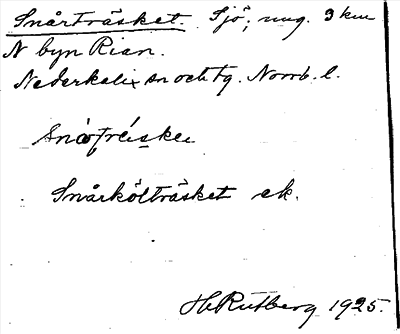 Snårträsket. Sjö, ung. 3 km
N byn Rian.
Nederkalix sn och tg. Norrb. l.
Snårkölträsket ek.
H Rutberg 1925.